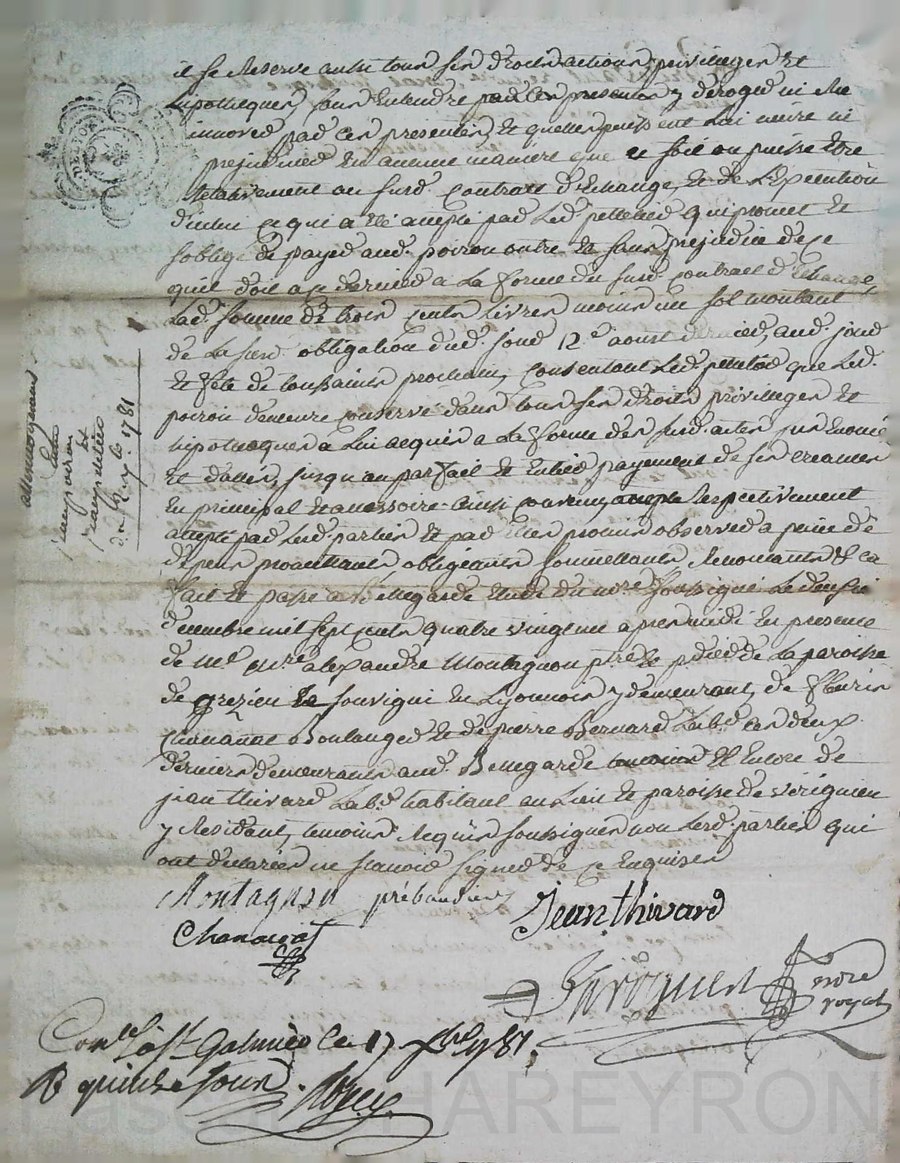 il se Reserve aussi tous ses droits actions privilleges et
hipotheques sans Entendre par ces presentes y deroger ni Re
innover par ces presentes, et quelles puissent Lui nuire ni
prejudicier En aucune maniere que ce soit ou puisse Etre
Relativement au susd. Contrat d'Echange, et de L'Execution
d'icelui ce qui a été accepté par Led. pelletier qui promet et
s'oblige de payer aud. poiron outre et sans prejudice de ce
qu'il doit a ce dernier a La forme du susd. contract d'Echange,
Lad. somme de trois cents Livres moins un sol montant
de La susd. obligation dud. jour 12e aoust dernier, aud. jour
et fete de toussaints prochain, Consentant Led. pelletier que Led.
poiron demeure conservé dans tous ses droits privilleges et
hipotheques a Lui acquis a La forme des susd. actes sus enoncé
et dattés, jusqu'au parfait et Entier payement de ses creances
En principal et accessoire ainsi convenu, Respectivement
accepté par Lesd. parties et par elles promis observer a peine de
depens promettants obligeants soumettants Renonçants &ca
fait et passé a Bellegarde Etude du nore. soussigné Le
decembre mil sept cents quatre vingt un apres midi En presence
de Mre alexandre Montagnon ptre de La paroisse
de grezieu Le souvigni En Lyonnois y demeurant, de fleuris
Chanavat Boulanger et de pierre Bernard Lab. ces deux
derniers demeurants aud. Bellegarde temoins Et Encore de
jean thivard Lab. habitant au Lieu et paroisse de verignieu
y Resident, temoins Requis soussignés non Lesd. parties qui
ont declarées ne scavoir signer de ce Enquises
Montagnon prébandier
Jean thivard
Chanavat
nore
royal
Conlé à St Galmier Le 17 Xbre 1781.
R quinze sous.
entre
poiron
et
pelletier
du Xbre 1781
Pascal CHAREYRON